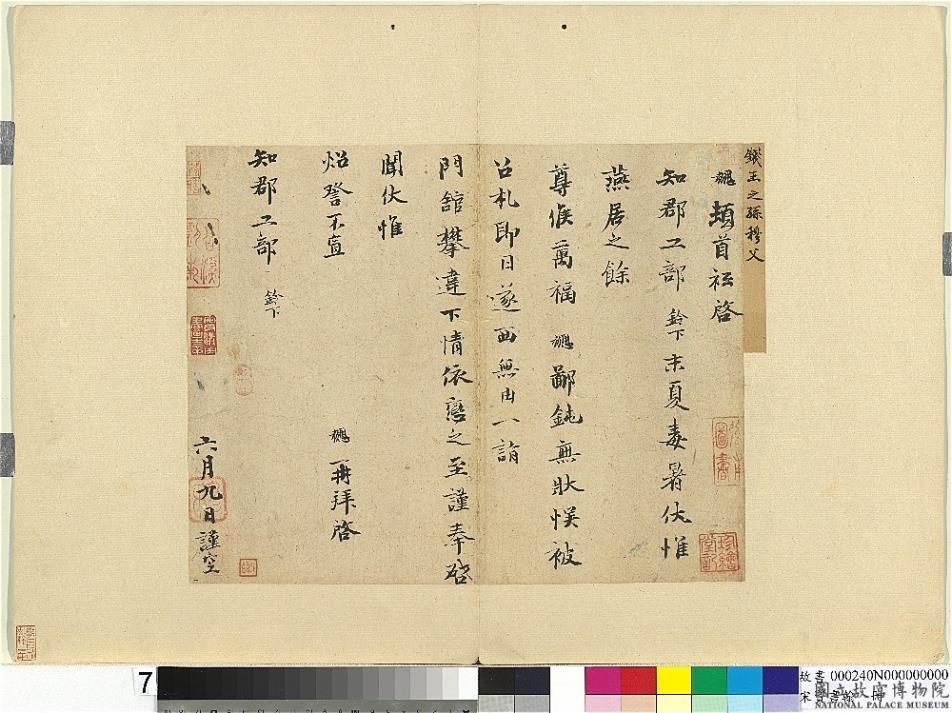 錢王之孫穆父
勰頓首拜啓
知郡工部鈴下末夏毒暑伏惟
燕居之餘
尊候萬福勰鄙鈍無狀悮被
召札即日遂西無由一詣
門館攀違下情依戀之至謹奉啓
聞伏惟
炤詧不宣
勰再拜啓
知郡工部鈴下
六月九日謹空
7
故書 000240N000000000
國立故宮博物院
NATIONAL PALACE MUSEUM